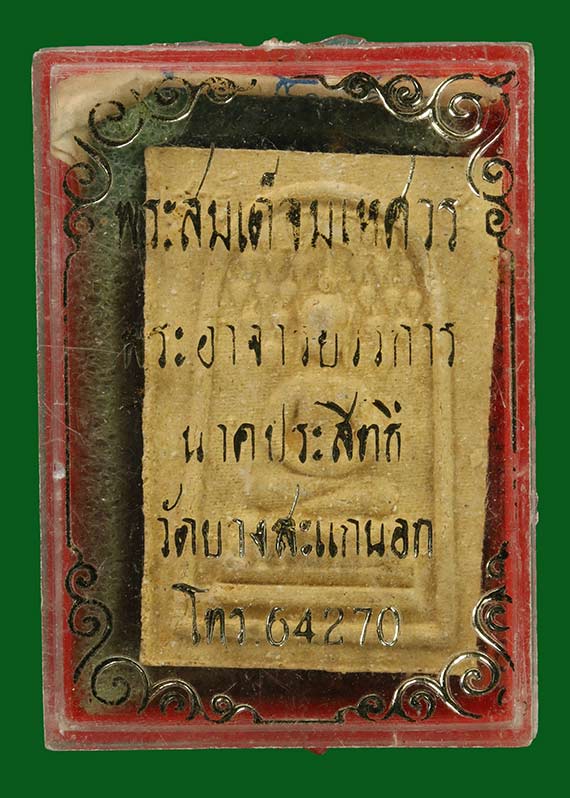 พระสมเด็จมเหศวร
พระอาจารย์วิวการ
นาคประสิทธิ
วัดบางสะแกนอก
โทร.64270